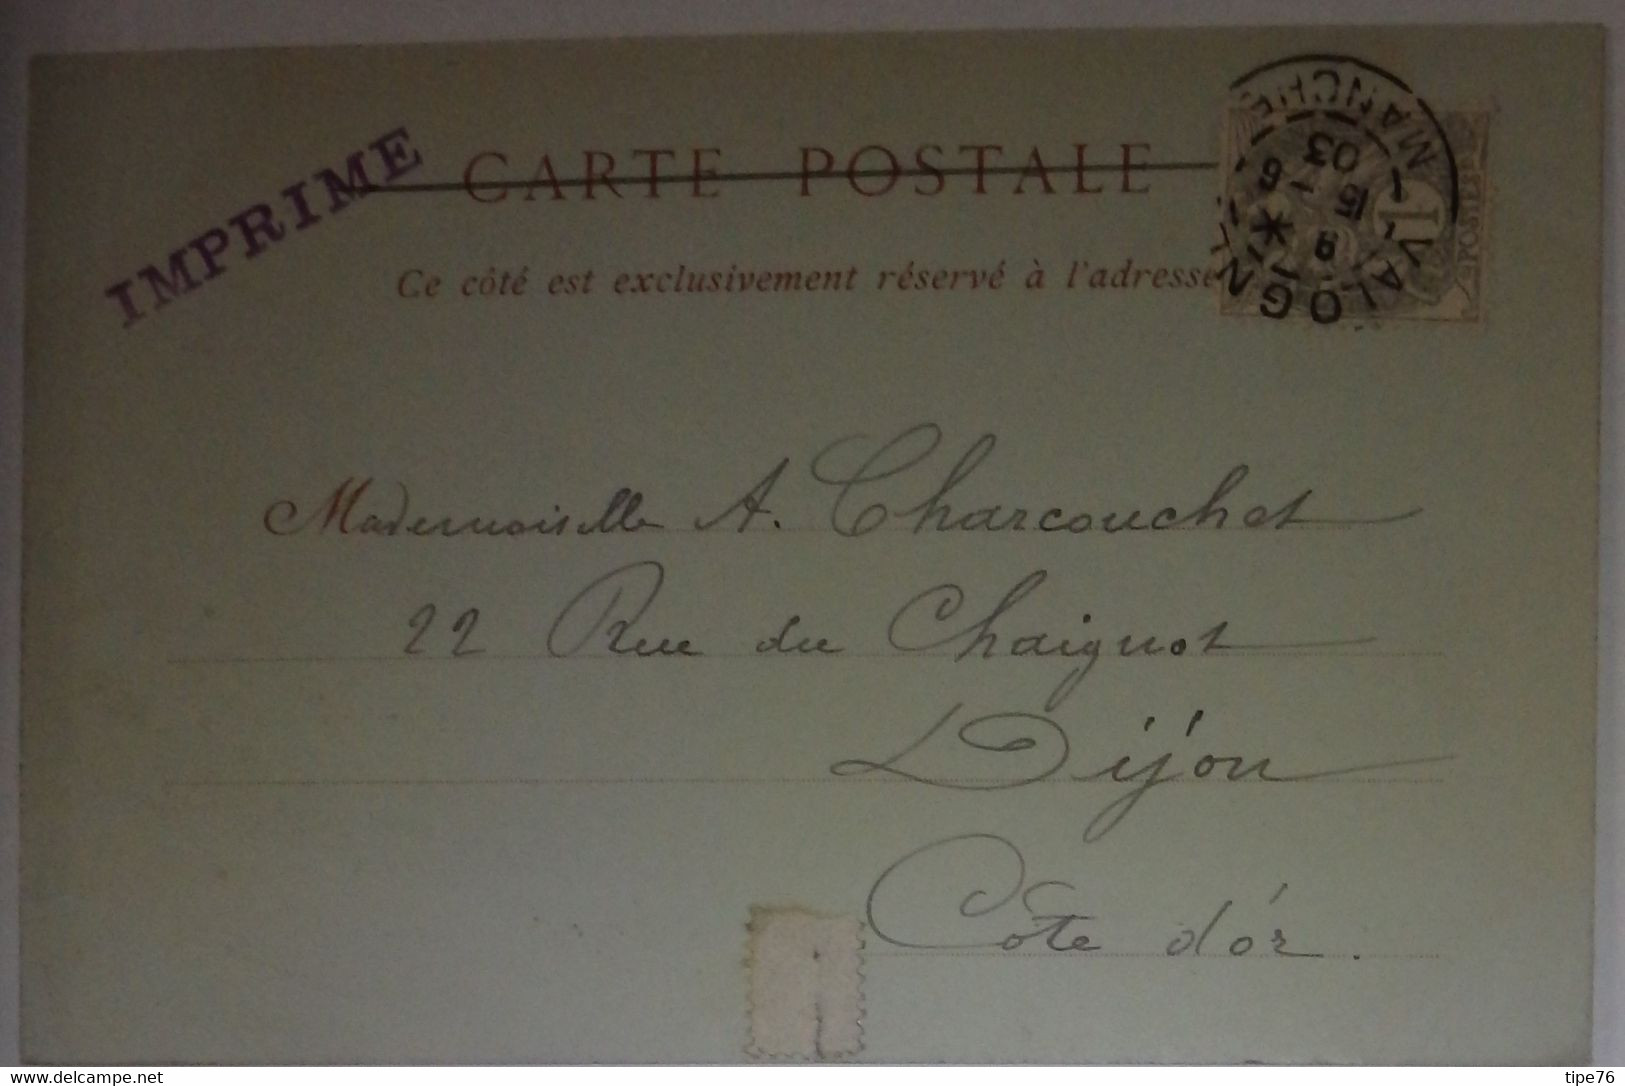 IMPRIME
CARTE POSTALE
Ce côté est exclusivement réservé à l'adresse
VALOGN
MANCHE
15
03
1
POSTES
Mademoiselle A. Charcouchet
22 Rue du Chaignot
Dijon
Côte d'or.
www.delcampe.net
tipe76